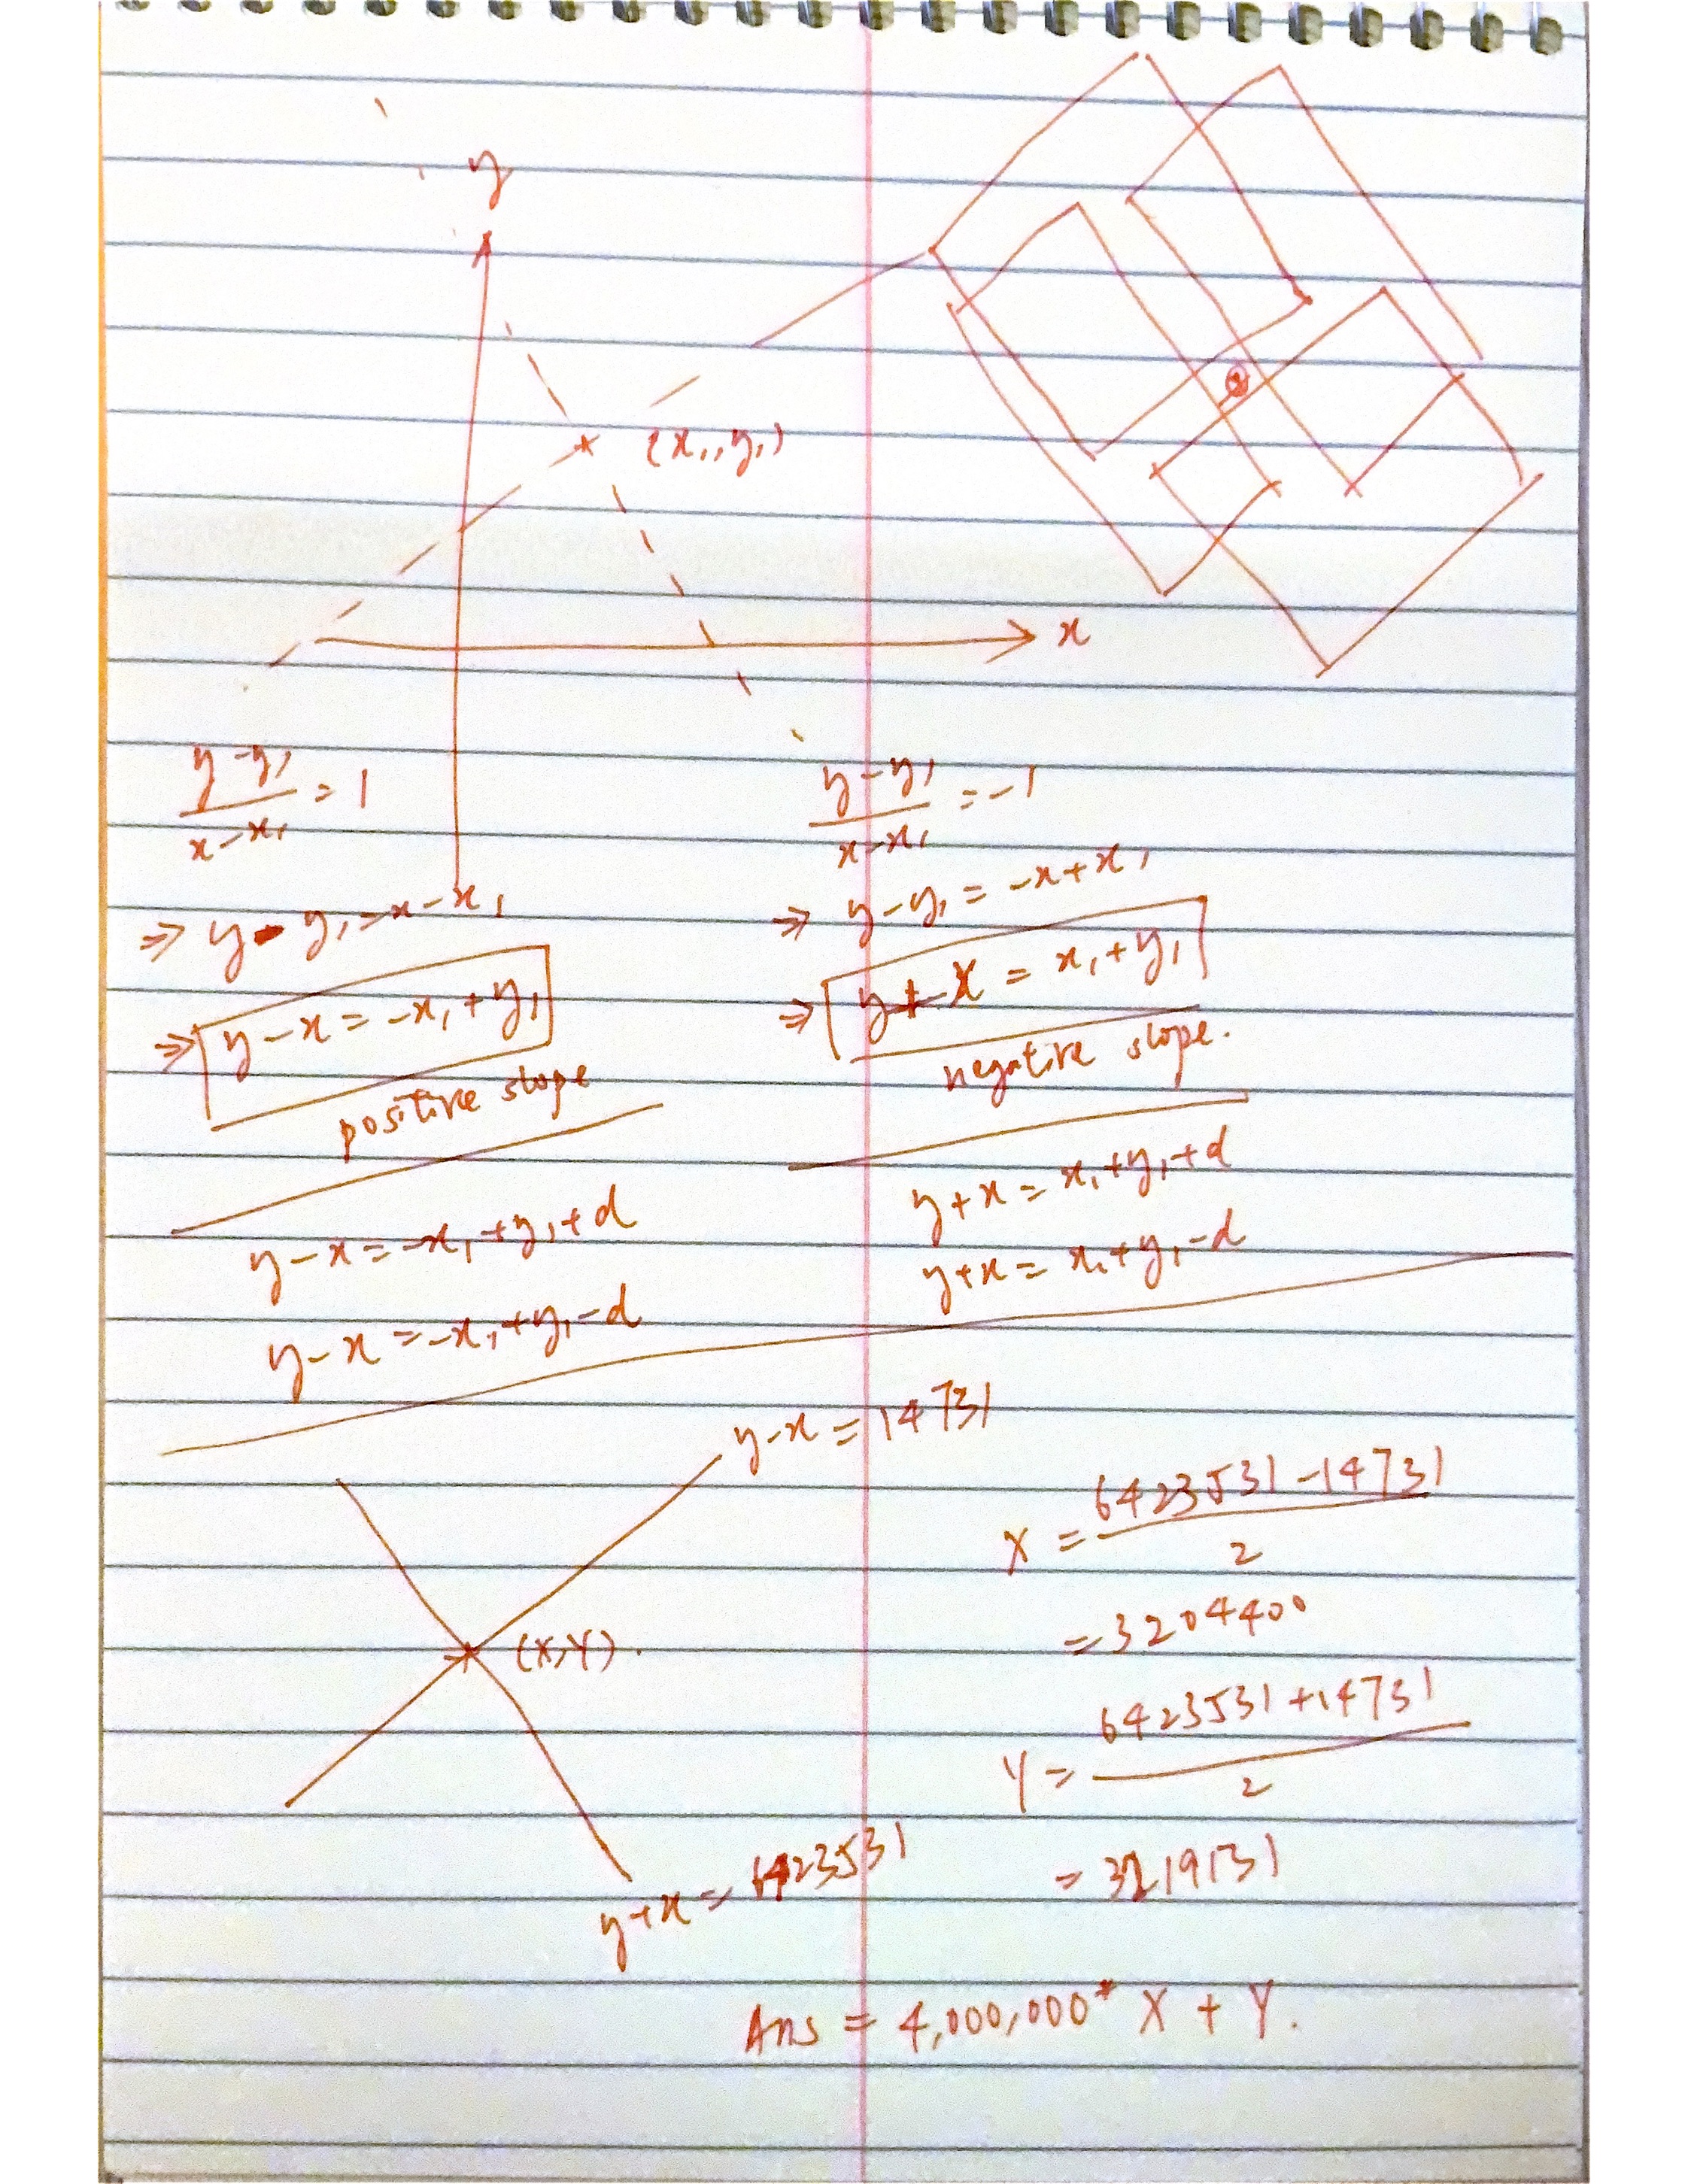 y
(x₁, y₁)
x
(y-y₁)/(x-x₁) = 1
⇒ y - y₁ = x - x₁
⇒ y - x = -x₁ + y₁
positive slope
y - x = -x₁ + y₁ + d
y - x = -x₁ + y₁ - d
(y-y₁)/(x-x₁) = -1
⇒ y - y₁ = -x + x₁
⇒ y + x = x₁ + y₁
negative slope.
y + x = x₁ + y₁ + d
y + x = x₁ + y₁ - d
y - x = 14731
(X,Y).
y + x = 6423531
X = (6423531 - 14731)/2
= 3204400
Y = (6423531 + 14731)/2
= 3219131
Ans = 4,000,000* X + Y.